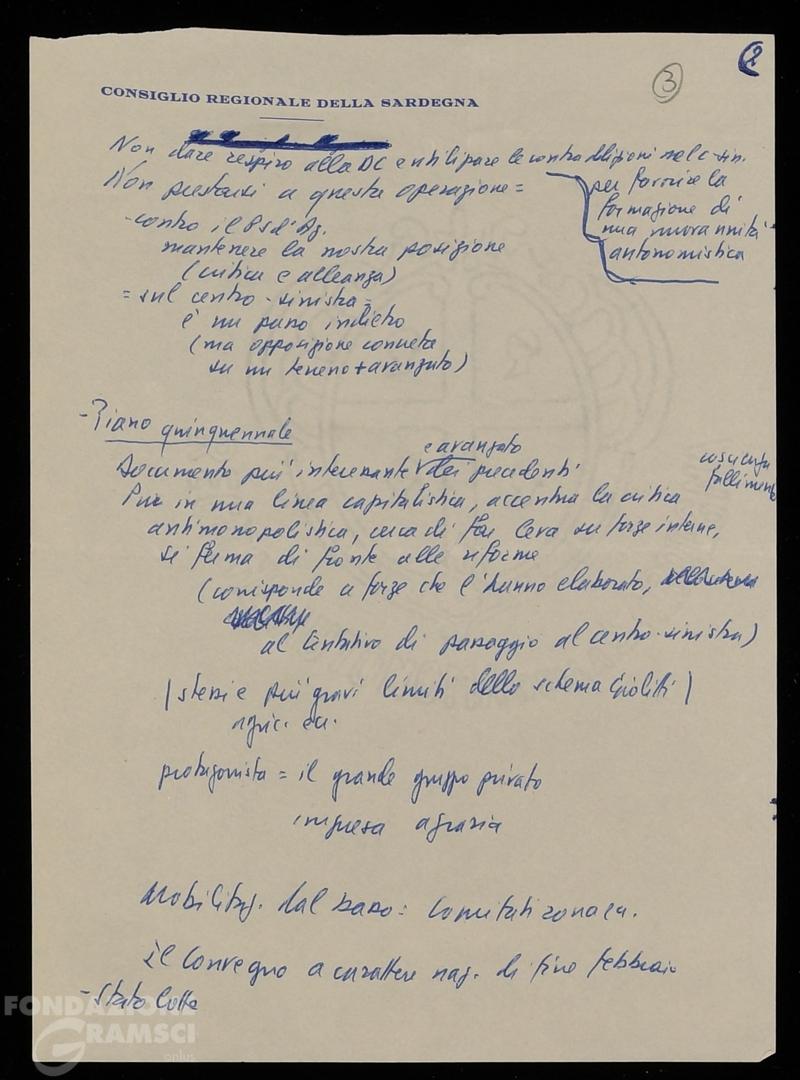 2
3
CONSIGLIO REGIONALE DELLA SARDEGNA
Non dare respiro alla DC e utilizzare le contraddizioni nel c-sin.
Non prestarsi a questa operazione =
per favorire la
formazione di
una nuova unità
autonomistica
- contro il Psd'Az.
mantenere la nostra posizione
(critica e alleanza)
= sul centro-sinistra =
è un passo indietro
(ma opposizione concreta
su un terreno + avanzato)
- Piano quinquennale
e avanzato
Documento più interessante dei precedenti
fallimento
Pur in una linea capitalistica, accentua la critica
antimonopolistica, cerca di far leva su forze interne,
si ferma di fronte alle riforme
(corrisponde a forze che l'hanno elaborato,
al tentativo di passaggio al centro-sinistra)
(stessi e più gravi limiti dello schema Giolitti)
agric. ecc.
protagonista = il grande gruppo privato
impresa agraria
Mobilitaz. dal basso: Comitati zona ecc.
Il Convegno a carattere naz. di fine febbraio
- Stato lotte
FONDAZIONE
GRAMSCI
onlus